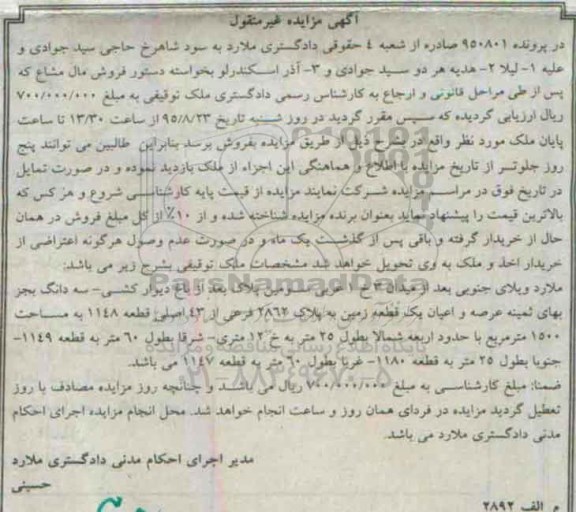 آگهی مزایده غیرمنقول
در پرونده ۹۵۰۸۰۱ صادره از شعبه ٤ حقوقی دادگستری ملارد به سود شاهرخ حاجی سید جوادی و
علیه ۱- لیلا ۲- هدیه هر دو سید جوادی و ۳- آذر اسکندرلو بخواسته دستور فروش مال مشاع که
پس از طی مراحل قانونی و ارجاع به کارشناس رسمی دادگستری ملک توقیفی به مبلغ ۷۰۰/۰۰۰/۰۰۰
ریال ارزیابی گردیده که سپس مقرر گردید در روز شنبه تاریخ ۹۵/۸/۲۳ از ساعت ۱۳/۳۰ تا ساعت
پایان ملک مورد نظر واقع در بشرح ذیل از طریق مزایده بفروش برسد بنابراین طالبین می توانند پنج
روز جلوتر از تاریخ مزایده با اطلاع و هماهنگی این اجراء از ملک بازدید نموده و در صورت تمایل
در تاریخ فوق در مراسم مزایده شرکت نمایند مزایده از قیمت پایه کارشناسی شروع و هر کس که
بالاترین قیمت را پیشنهاد نماید بعنوان برنده مزایده شناخته شده و از ۱۰٪ از کل مبلغ فروش در همان
حال از خریدار گرفته و باقی پس از گذشت یک ماه و در صورت عدم وصول هرگونه اعتراضی از
خریدار اخذ و ملک به وی تحویل خواهد شد مشخصات ملک توقیفی بشرح زیر می باشد:
ملارد ویلای جنوبی بعد از میدان ۳ خ ۱۰ غربی سومین پلاک بعد از باغ دیوار کشی- سه دانگ بجز
بهای ثمینه عرصه و اعیان یک قطعه زمین به پلاک ۲۸۶۲ فرعی از ۴۳ اصلی قطعه ۱۱۴۸ به مساحت
۱۵۰۰ مترمربع با حدود اربعه شمالا بطول ۲۵ متر به خ ۱۲ متری- شرقا بطول ۶۰ متر به قطعه ۱۱۴۹-
جنوبا بطول ۲۵ متر به قطعه ۱۱۸۰- غربا بطول ۶۰ متر به قطعه ۱۱۴۷ می باشد.
ضمنا: مبلغ کارشناسی به مبلغ ۷۰۰/۰۰۰/۰۰۰ ریال می باشد و چنانچه روز مزایده مصادف با روز
تعطیل گردید مزایده در فردای همان روز و ساعت انجام خواهد شد. محل انجام مزایده اجرای احکام
مدنی دادگستری ملارد می باشد.
مدیر اجرای احکام مدنی دادگستری ملارد
حسینی
م الف ۲۸۹۲
ParsNamadData